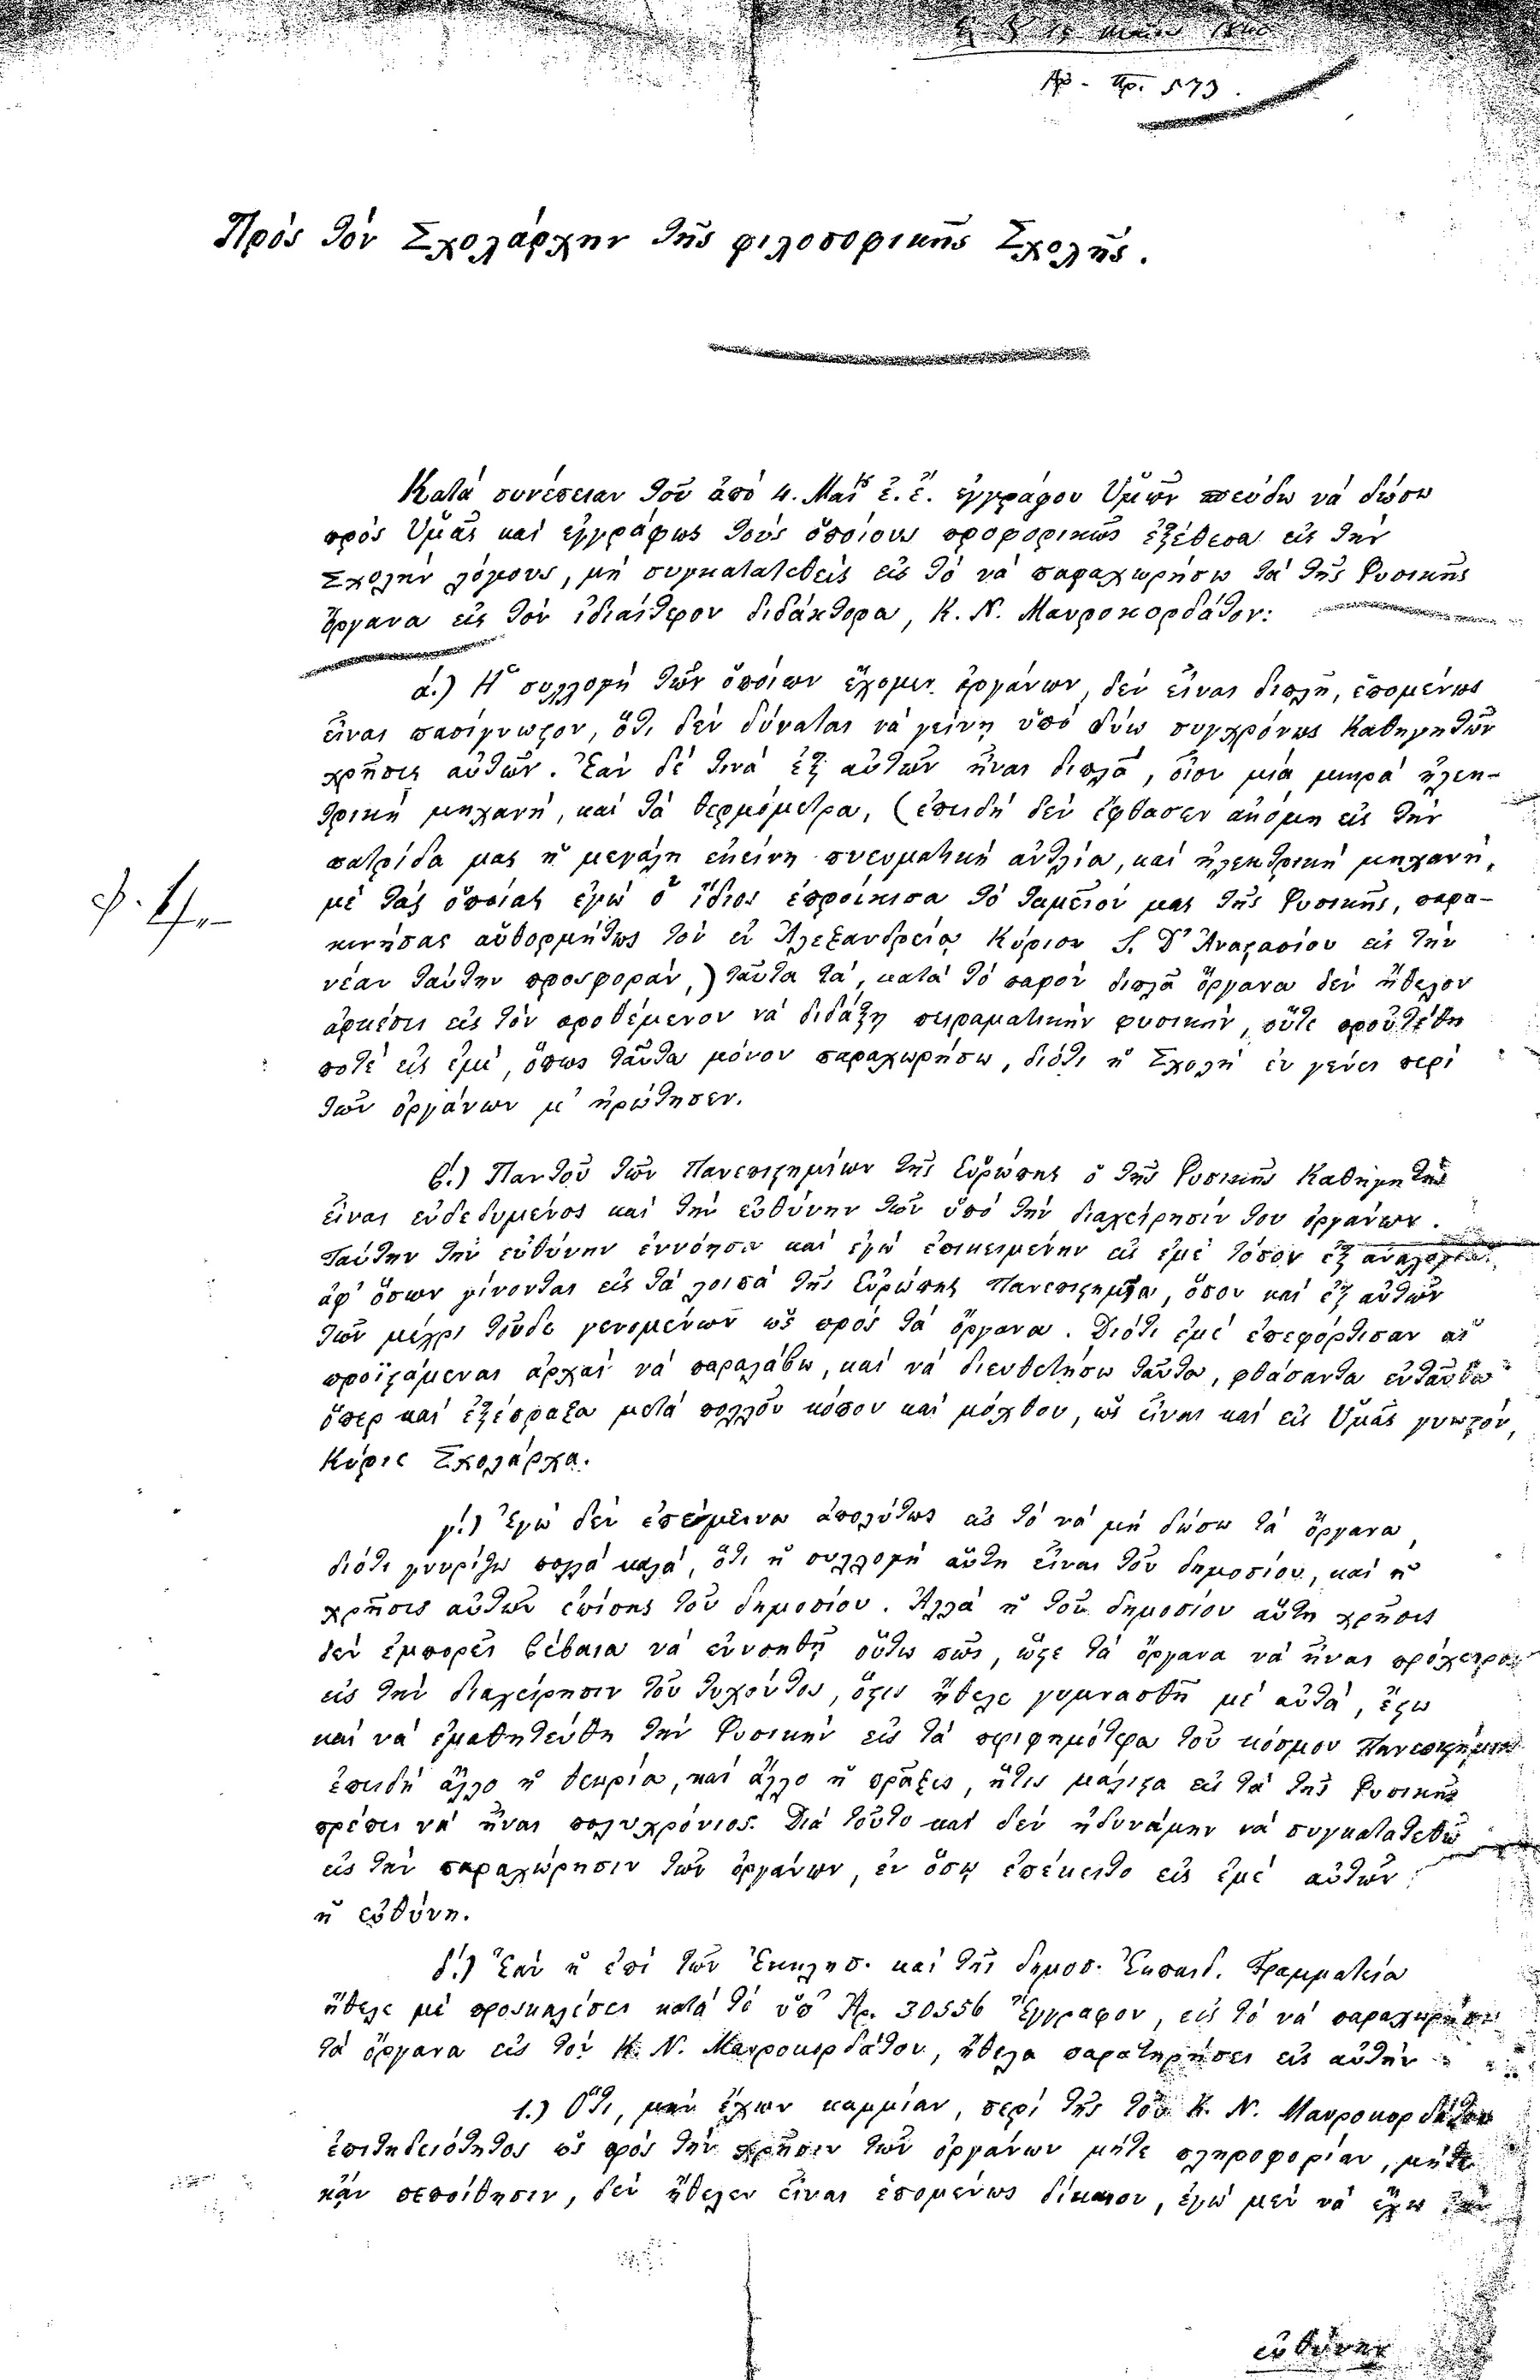 15 Μαΐου 1840
Ἀρ. Πρ. 573.
Πρὸς τὸν Σχολάρχην τῆς φιλοσοφικῆς Σχολῆς.
Κατὰ συνέπειαν τοῦ ἀπὸ 4. Μαΐ ἐ. ἔ. ἐγγράφου Ὑμῶν σπεύδω νὰ δώσω
πρὸς Ὑμᾶς καὶ ἐγγράφως τοὺς ὁποίους προφορικῶς ἐξέθεσα εἰς τὴν
Σχολὴν λόγους, μὴ συγκατατεθεὶς εἰς τὸ νὰ παραχωρήσω τὰ τῆς Φυσικῆς
ὄργανα εἰς τὸν ἰδιαίτερον διδάκτορα, Κ. Ν. Μαυροκορδάτον:
ά.) Ἡ συλλογὴ τῶν ὁποίων ἔχομεν ὀργάνων, δὲν εἶναι διπλῆ, ἑπομένως
εἶναι πασίγνωστον, ὅτι δὲν δύναται νὰ γείνῃ ὑπὸ δύω συγχρόνως Καθηγητῶν
χρῆσις αὐτῶν. Ἐὰν δέ τινα ἐξ αὐτῶν ἦναι διπλᾶ, οἷον μία μικρὰ ἠλεκ-
τρικὴ μηχανὴ, καὶ τὰ θερμόμετρα, (ἐπειδὴ δὲν ἔφθασεν ἀκόμη εἰς τὴν
πατρίδα μας ἡ μεγάλη ἐκείνη πνευματικὴ ἀντλία, καὶ ἠλεκτρικὴ μηχανὴ,
μὲ τὰς ὁποίας ἐγὼ ὁ ἴδιος ἐπροίκισα τὸ ταμεῖόν μας τῆς Φυσικῆς, παρα-
κινήσας αὐθορμήτως τὸν ἐν Ἀλεξανδρείᾳ Κύριον Ἀναστασίου εἰς τὴν
νέαν ταύτην προσφορὰν,) ταῦτα τὰ, κατὰ τὸ παρὸν διπλᾶ ὄργανα δὲν ἤθελον
ἀρκέσει εἰς τὸν προθέμενον νὰ διδάξῃ πειραματικὴν φυσικὴν, οὔτε προὐτέθη
ποτὲ εἰς ἐμὲ, ὅπως ταῦτα μόνον παραχωρήσω, διότι ἡ Σχολὴ ἐν γένει περὶ
τῶν ὀργάνων μ' ἠρώτησεν.
β́.) Παντοῦ τῶν Πανεπιστημίων τῆς Εὐρώπης ὁ τῆς Φυσικῆς Καθηγητὴς
εἶναι ἐνδεδυμένος καὶ τὴν εὐθύνην τῶν ὑπὸ τὴν διαχείρησίν του ὀργάνων.
Ταύτην τὴν εὐθύνην ἐννόησα καὶ ἐγὼ ἐπικειμένην εἰς ἐμὲ τόσον ἐξ ἀναλογίας,
ἀφ' ὅσων γίνονται εἰς τὰ λοιπὰ τῆς Εὐρώπης Πανεπιστημία, ὅσον καὶ ἐξ αὐτῶν
τῶν μέχρι τοῦδε γενομένων ὡς πρὸς τὰ ὄργανα. Διότι ἐμὲ ἐπεφόρτισαν αἱ
προϊστάμεναι ἀρχαὶ νὰ παραλάβω, καὶ νὰ διευθετήσω ταῦτα, φθάσαντα ἐνταῦθα
ὅπερ καὶ ἐξέπραξα μετὰ πολλὸν κόπον καὶ μόχθον, ὡς εἶναι καὶ εἰς Ὑμᾶς γνωστὸν,
Κύριε Σχολάρχα.
γ́.) Ἐγὼ δὲν ἐπέμεινα ἀπολύτως εἰς τὸ νὰ μὴ δώσω τὰ ὄργανα,
διότι γνωρίζω πολλὰ καλὰ, ὅτι ἡ συλλογὴ αὕτη εἶναι τοῦ δημοσίου, καὶ ἡ
χρῆσις αὐτῶν ἐπίσης τοῦ δημοσίου. Ἀλλὰ ἡ τοῦ δημοσίου αὕτη χρῆσις
δὲν ἐμπορεῖ βέβαια νὰ ἐννοηθῇ οὕτω πῶς, ὥστε τὰ ὄργανα νὰ ἦναι πρόχειρα
εἰς τὴν διαχείρησιν τοῦ τυχόντος, ὅστις ἤθελε γυμνασθῆ μὲ αὐτὰ, ἔστω
καὶ νὰ ἐμαθητεύθη τὴν Φυσικὴν εἰς τὰ περιφημότερα τοῦ κόσμου Πανεπιστήμια
ἐπειδὴ ἄλλο ἡ θεωρία, καὶ ἄλλο ἡ πρᾶξις, ἥτις μάλιστα εἰς τὰ τῆς Φυσικῆς
πρέπει νὰ ἦναι πολυχρόνιος. Διὰ τοῦτο καὶ δὲν ἠδυνάμην νὰ συγκατατεθῶ
εἰς τὴν παραχώρησιν τῶν ὀργάνων, ἐν ὅσῳ ἐπέκειτο εἰς ἐμὲ αὐτῶν
ἡ εὐθύνη.
δ́.) Ἐὰν ἡ ἐπὶ τῶν Ἐκκλησ. καὶ τῆς δημοσ. Ἐκπαιδ. Γραμματεία
ἤθελε μὲ προσκαλέσει κατὰ τὸ ὑπ' Ἀρ. 30556 Ἔγγραφον, εἰς τὸ νὰ παραχωρήσω
τὰ ὄργανα εἰς τὸν Κ. Ν. Μαυροκορδάτον, ἤθελα παρατηρήσει εἰς αὐτὴν
1.) Ὅτι, μὴν ἔχων καμμίαν, περὶ τῆς τοῦ Κ. Ν. Μαυροκορδάτου
ἐπιτηδειότητος ὡς πρὸς τὴν χρῆσιν τῶν ὀργάνων μήτε πληροφορίαν, μήτε
κἂν πεποίθησιν, δὲν ἤθελεν εἶναι ἑπομένως δίκαιον, ἐγὼ μὲν νὰ ἔχω τὴν
εὐθύνην